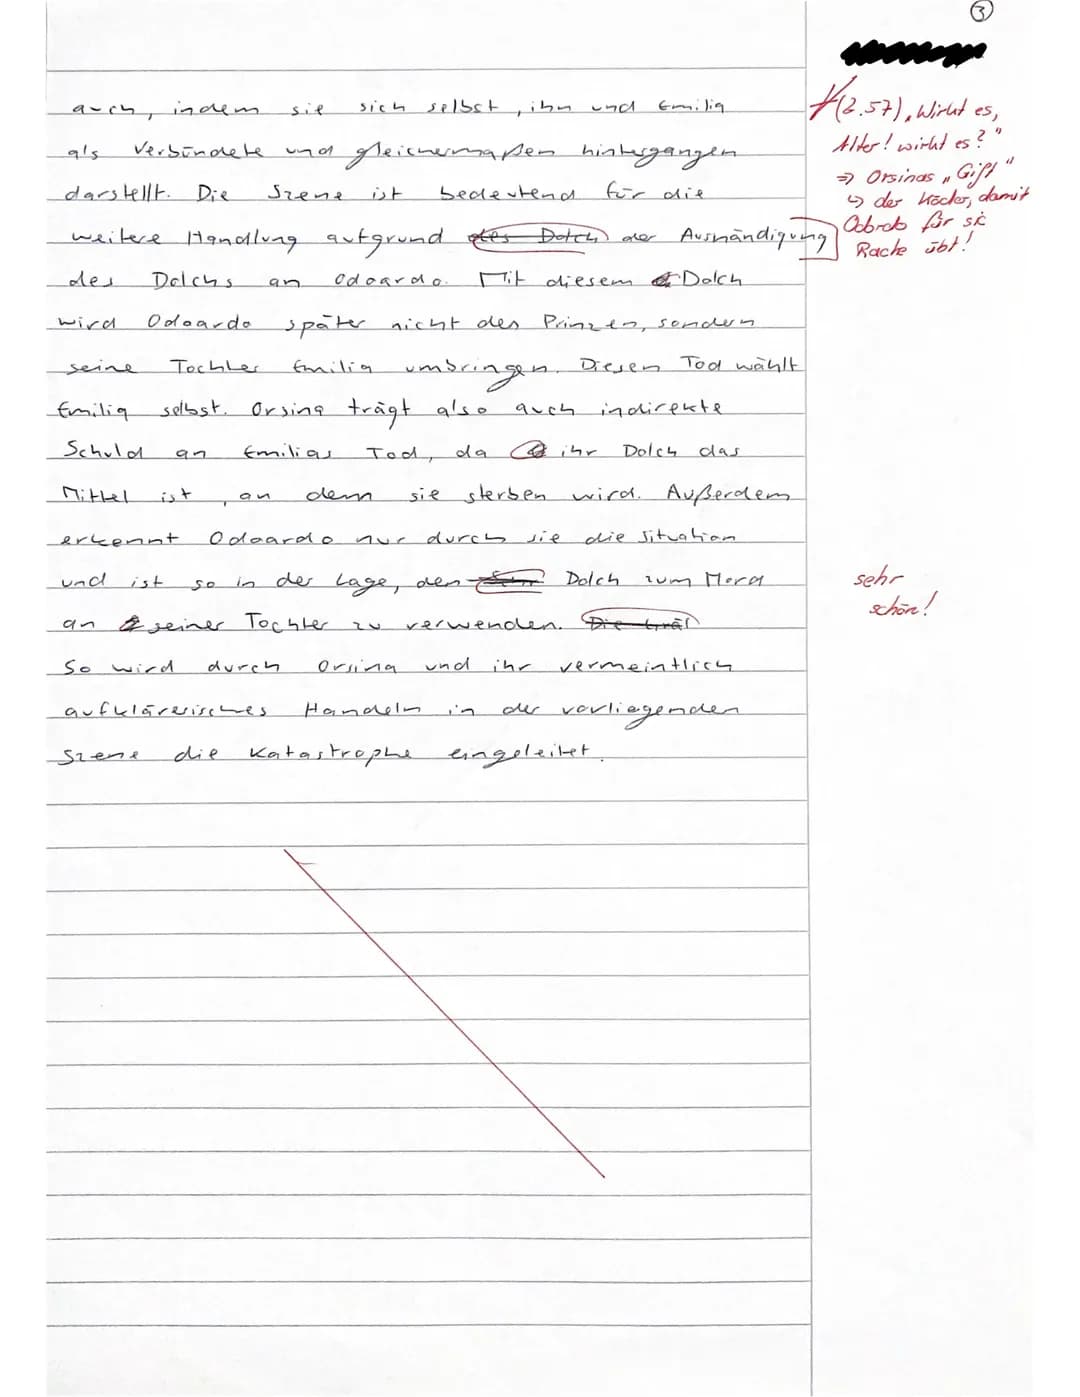 ③
auch, indem sie sich selbst, ihn und Emilia
als Verbündete und gleichermaßen hintergangen
darstellt. Die Szene ist bedeutend für die
weitere Handlung aufgrund des Dolch der Aushändigung
des Dolchs an Odoardo. Mit diesem Dolch
wird Odoardo später nicht den Prinzen, sondern
seine Tochter Emilia umbringen. Diesen Tod wählt
Emilia selbst. Orsina trägt also auch indirekte
Schuld an Emilias Tod, da ihr Dolch das
Mittel ist, an dem sie sterben wird. Außerdem
erkennt Odoardo nur durch sie die Situation
und ist so in der Lage, den Dolch zum Mord
an seiner Tochter zu verwenden. Die Gräf
So wird durch Orsina und ihr vermeintlich
aufklärerisches Handeln in der vorliegenden
Szene die Katastrophe eingeleitet.
(Z.57) „Wirkt es,
Alter! wirkt es?"
⇒ Orsinas „Gift"
↳ der Köcher, damit
Odoardo für sie
Rache übt!
sehr
schön!